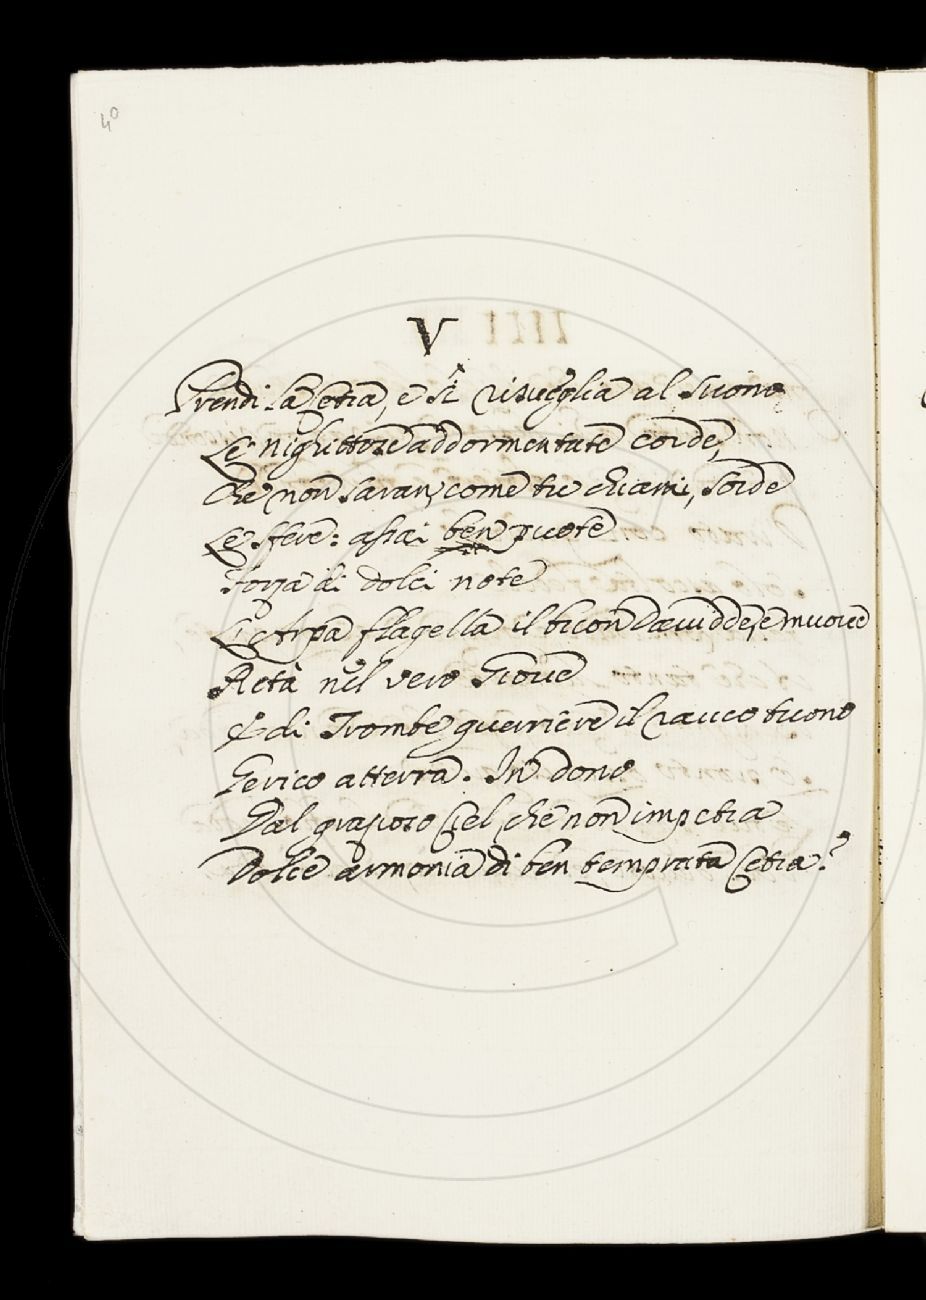 40
V
Prendi la Cetra, e sì risveglia al suono
Le nighittose addormentate corde,
Che non saran, come tu chiami, sorde
Le sfere: assai ben puote
Forza di dolci note
L'Arpa flagella il buon Davidde, e muove
Pietà nel vero Giove
E di Trombe guerriere il rauco tuono
Gerico atterra. In dono
Dal grazioso Ciel che non impetra
Dolce armonia di ben temprata Cetra?